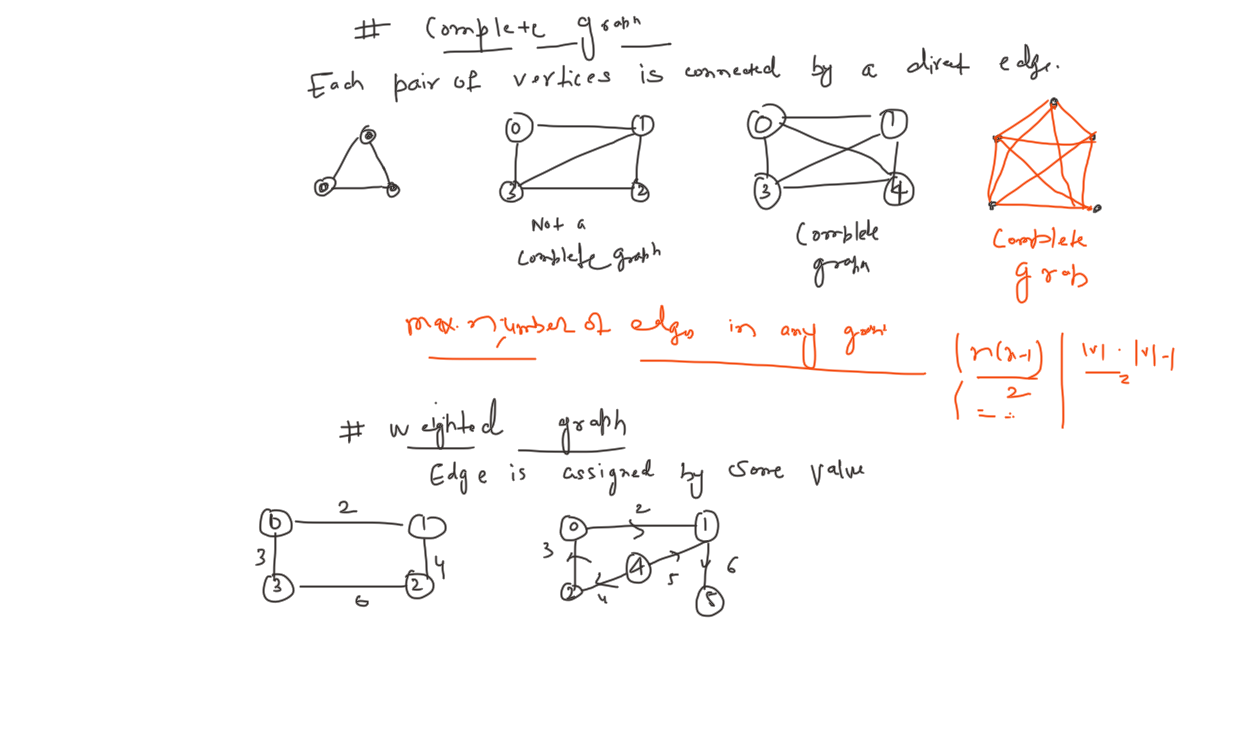 # Complete graph
Each pair of vertices is connected by a direct edge.
0 1
3 2
Not a
Complete graph
0 1
3 4
Complete
graph
Complete
grap
max. number of edges in any
n(n-1)
2
|v| . |v|-1
2
# weighted graph
Edge is assigned by some value
0 2 1
3 4
3 6 2
0 2 1
3 4 5 6
2 4 5